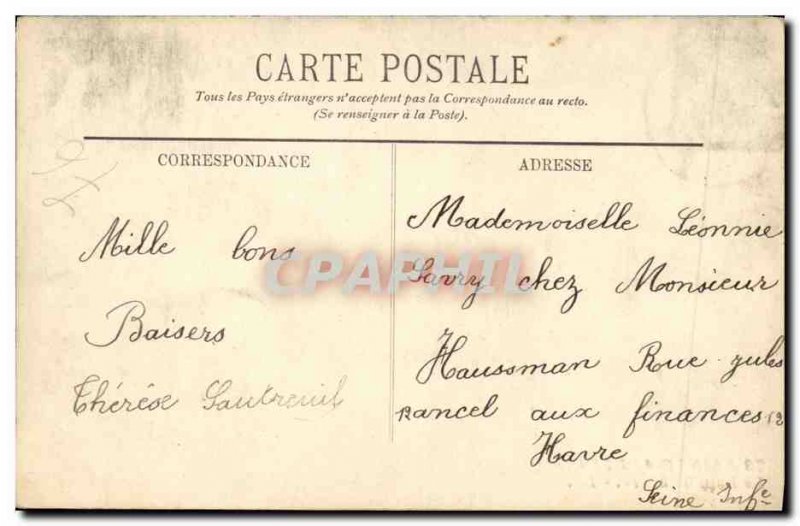 CARTE POSTALE
Tous les Pays étrangers n'acceptent pas la Correspondance au recto.
(Se renseigner à la Poste).
CORRESPONDANCE
Mille bons
Baisers
Thérèse Sautreuil
ADRESSE
Mademoiselle Léonnie
Savry chez Monsieur
Haussman Rue jules
ancel aux finances 12
Havre
Seine Infe
CPAPHIL